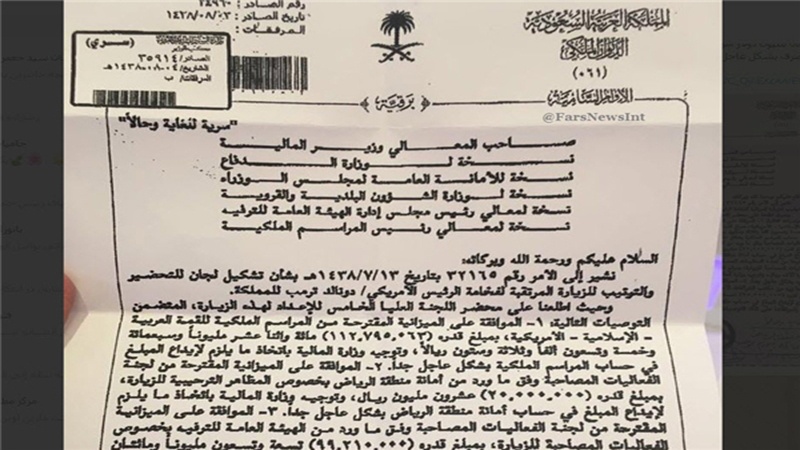 المملكة العربية السعودية
الديوان الملكي
(٠٦١)
الأوامر السامية
تاريخ الصادر : ١٤٣٨/٠٨/٠٣
المرفقات :
(سري)
الصادر/ ٣٥٩١٤
التاريخ/ ٠٤-٠٨-١٤٣٨هـ
المرفقات/ ب
برقية
@FarsNewsInt
"سرية للغاية وحالاً"
صاحب المعالي وزير المالية
نسخة لوزارة الدفاع
نسخة للأمانة العامة لمجلس الوزراء
نسخة لوزارة الشؤون البلدية والقروية
نسخة لمعالي رئيس مجلس إدارة الهيئة العامة للترفيه
نسخة لمعالي رئيس المراسم الملكية
السلام عليكم ورحمة الله وبركاته:
نشير إلى الأمر رقم ٣٢١٦٥ بتاريخ ١٤٣٨/٧/١٣هـ بشأن تشكيل لجان للتحضير
والترتيب للزيارة المرتقبة لفخامة الرئيس الأمريكي/ دونالد ترمب للمملكة.
وحيث اطلعنا على محضر اللجنة العليا الخامس للإعداد لهذه الزيارة، المتضمن
التوصيات التالية: ١- الموافقة على الميزانية المقترحة من المراسم الملكية للقمة العربية
- الإسلامية - الأمريكية، بمبلغ قدره (١١٢,٧٩٥,٠٦٣) مائة واثنا عشر مليوناً وسبعمائة
وخمسة وتسعون ألفاً وثلاثة وستون ريالاً، وتوجيه وزارة المالية باتخاذ ما يلزم لإيداع المبلغ
في حساب المراسم الملكية بشكل عاجل جداً. ٢- الموافقة على الميزانية المقترحة من لجنة
الفعاليات المصاحبة وفق ما ورد من أمانة منطقة الرياض بخصوص المظاهر الترحيبية للزيارة،
بمبلغ قدره (٢٠,٠٠٠,٠٠٠) عشرون مليون ريال، وتوجيه وزارة المالية باتخاذ ما يلزم
لإيداع المبلغ في حساب أمانة منطقة الرياض بشكل عاجل جداً. ٣- الموافقة على الميزانية
المقترحة من لجنة الفعاليات المصاحبة وفق ما ورد من الهيئة العامة للترفيه بخصوص
الفعاليات المصاحبة للزيارة، بمبلغ قدره (٩٩,٢١٠,٠٠٠) تسعة وتسعون مليوناً ومائتان